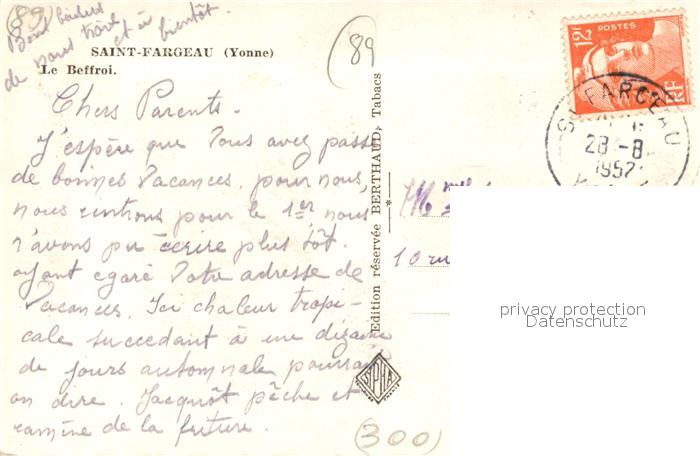 (89)
Bons baisers
de nous trois
et à bientôt.
SAINT-FARGEAU (Yonne)
Le Beffroi.
(89
Chers Parents.
J'espère que Vous avez passé
de bonnes Vacances. pour nous,
nous rentrons pour le 1er, nous
n'avons pu écrire plus tôt.
Ayant egaré Votre adresse de
Vacances. Ici chaleur tropi-
cale succedant à une dizaine
de jours automnale pourrait
on dire. Jacquôt pêche et
ramène de la friture.
(300)
Edition réservée BERTHAUD, Tabacs
SPHA
12F
POSTES
RF
ST FARGEAU
28-8
1952
10 rue
privacy protection
Datenschutz